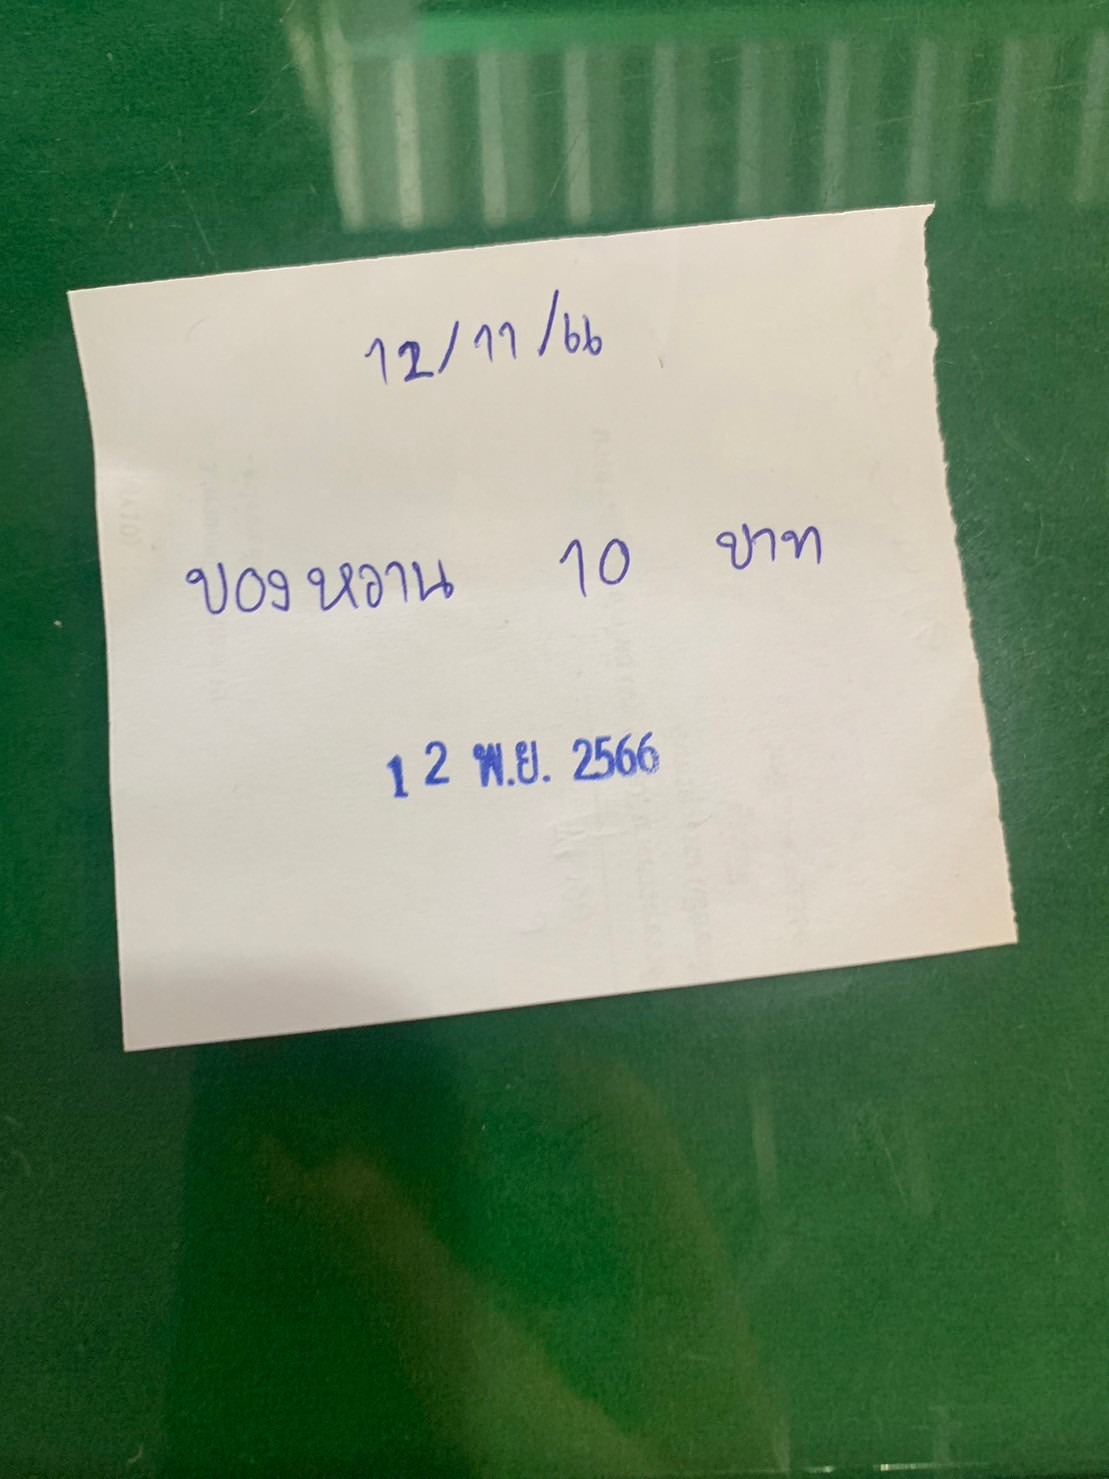 12/11/66
ของหวาน 10 บาท
12 พ.ย. 2566